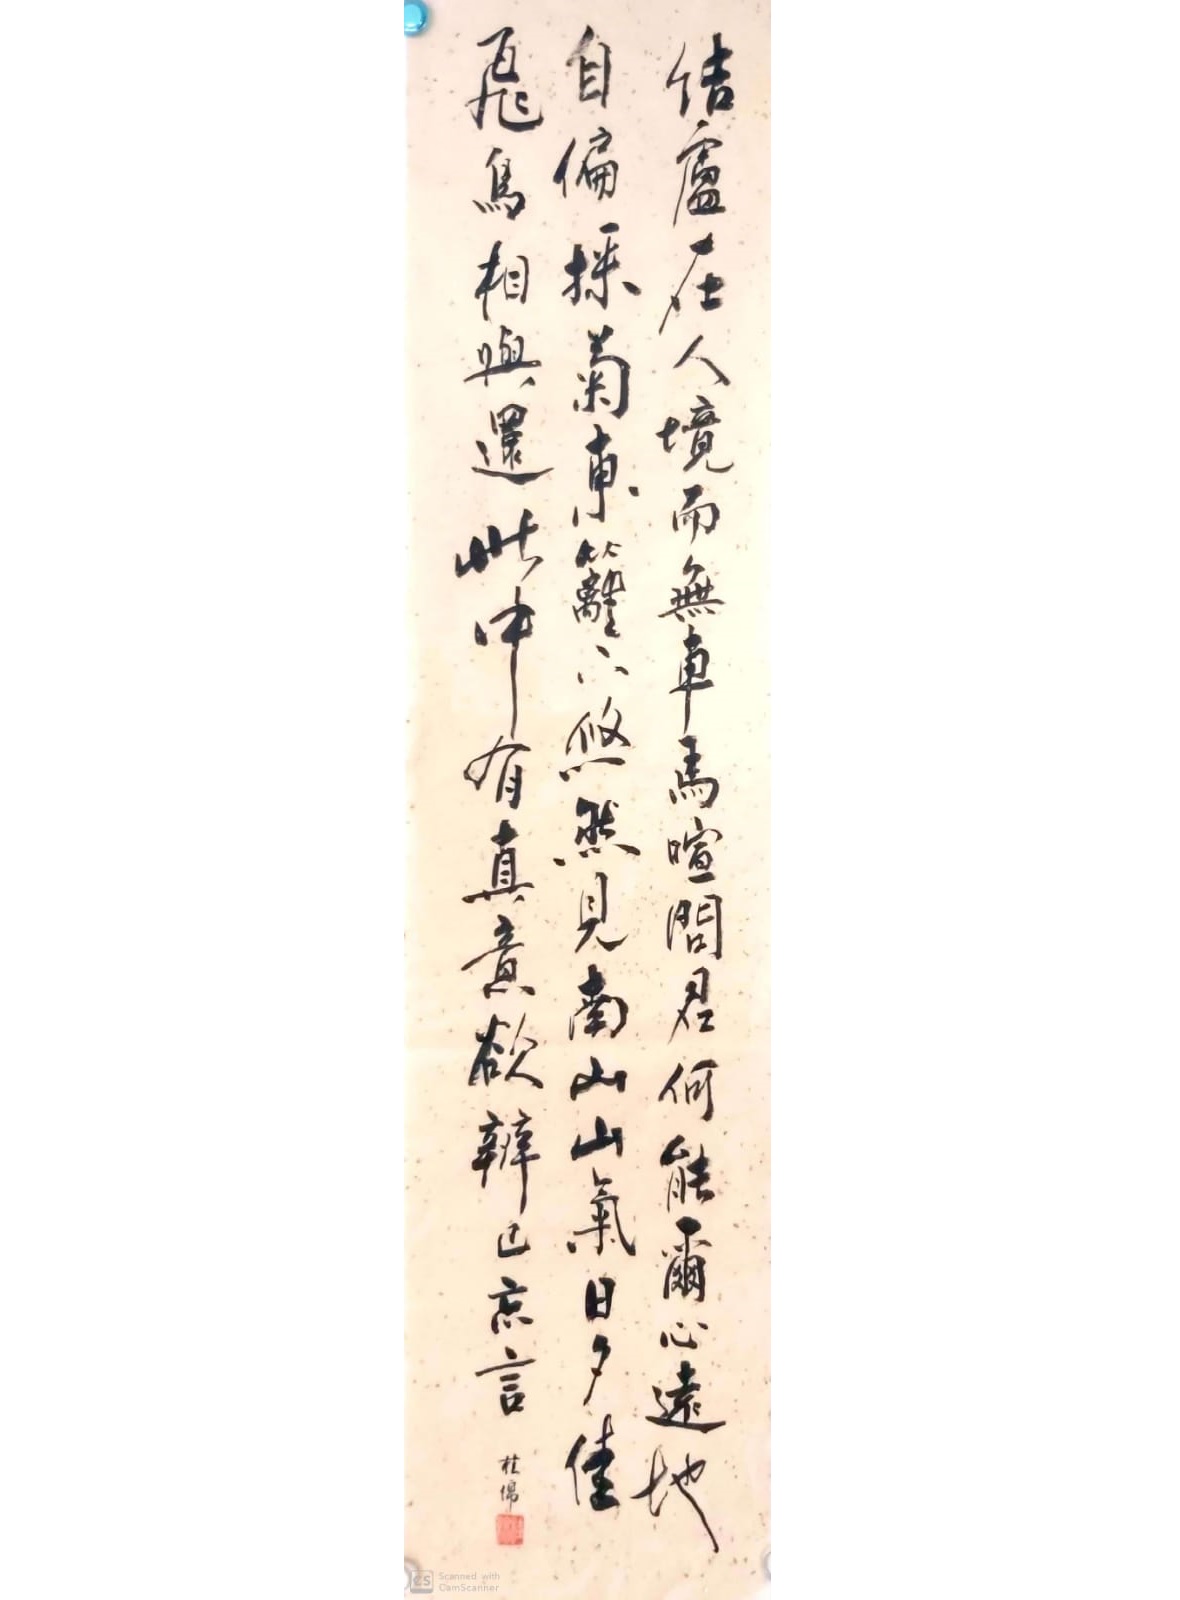 結廬在人境而無車馬喧問君何能爾心遠地
自偏採菊東籬下悠然見南山山氣日夕佳
飛鳥相與還此中有真意欲辨已忘言
桂
CS Scanned with
CamScanner